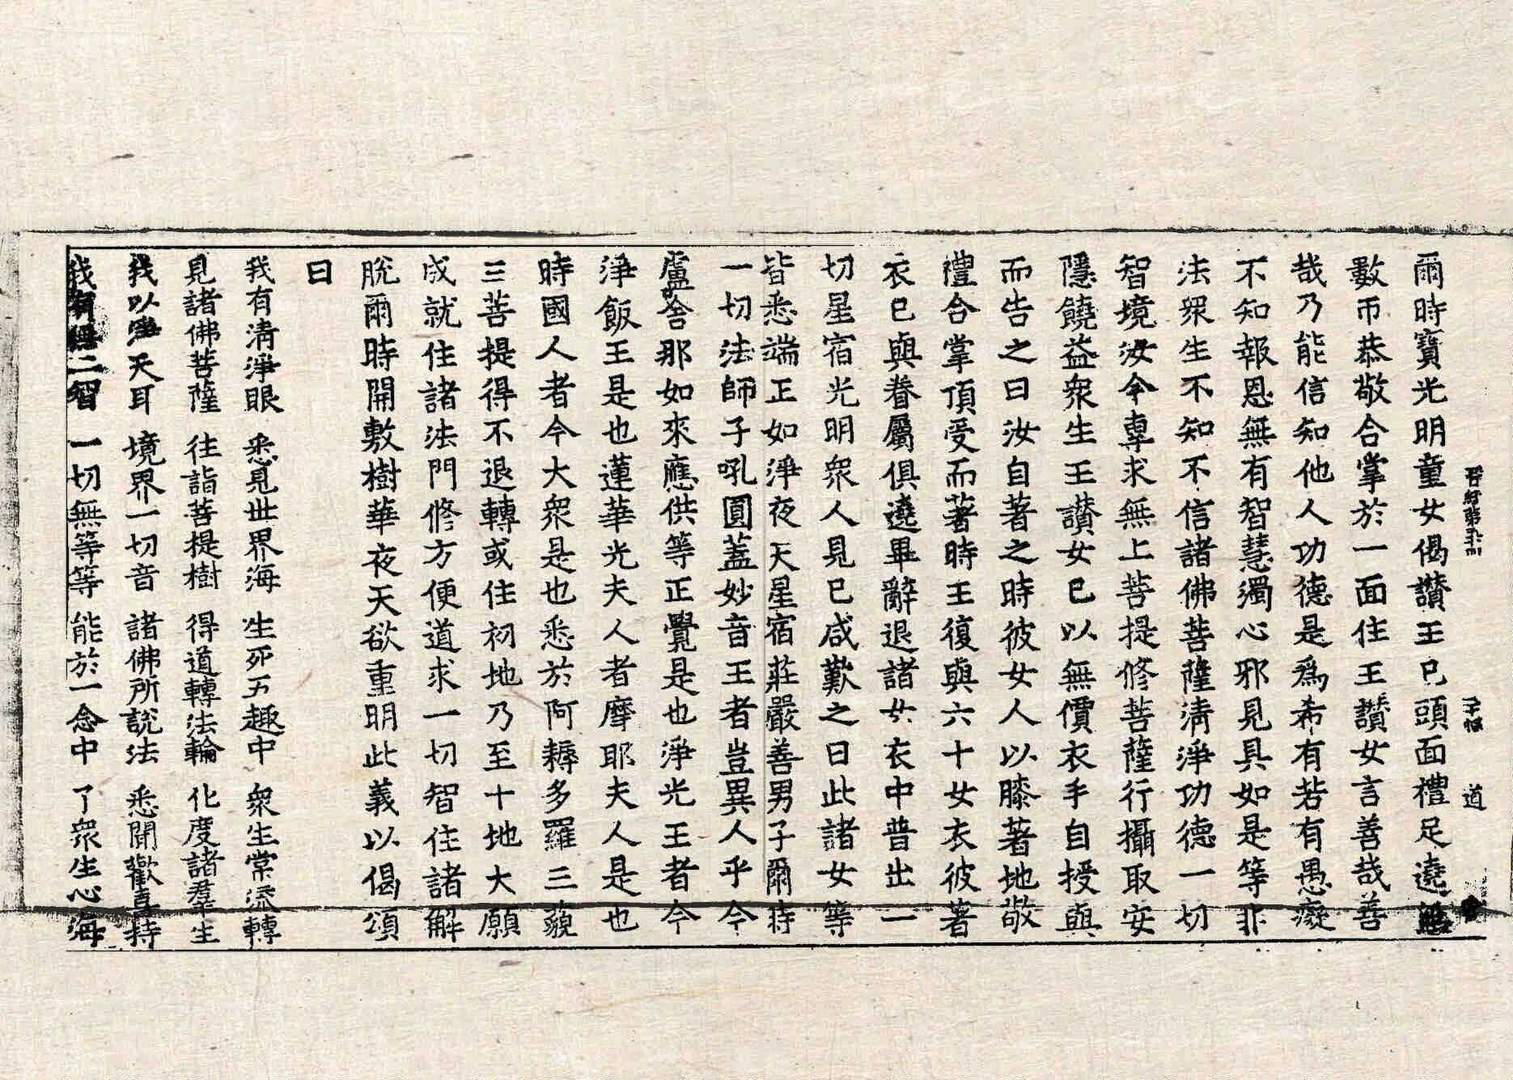 爾時寶光明童女偈讚王已頭面禮足遶
數帀恭敬合掌於一面住王讚女言善哉善
哉乃能信知他人功德是爲希有若有愚癡
不知報恩無有智慧濁心邪見具如是等非
法衆生不知不信諸佛菩薩清淨功德一切
智境汝今專求無上菩提修菩薩行攝取安
隱饒益衆生王讚女已以無價衣手自授與
而告之曰汝自著之時彼女人以膝著地敬
禮合掌頂受而著時王復與六十女衣彼著
衣已與眷屬俱遶畢辭退諸女衣中普出一
切星宿光明衆人見已咸歎之曰此諸女等
皆悉端正如淨夜天星宿莊嚴善男子爾時
一切法師子吼圓蓋妙音王者豈異人乎今
盧舍那如來應供等正覺是也淨光王者今
淨飯王是也蓮華光夫人者摩耶夫人是也
時國人者今大衆是也悉於阿耨多羅三藐
三菩提得不退轉或住初地乃至十地大願
成就住諸法門修方便道求一切智住諸解
脫爾時開敷樹華夜天欲重明此義以偈頌
曰
我有清淨眼 悉見世界海 生死五趣中 衆生常流轉
見諸佛菩薩 往詣菩提樹 得道轉法輪 化度諸羣生
我以 天耳 境界一切音 諸佛所說法 悉聞歡喜持
我 二智 一切無等等 能於一念中 了衆生心海
道